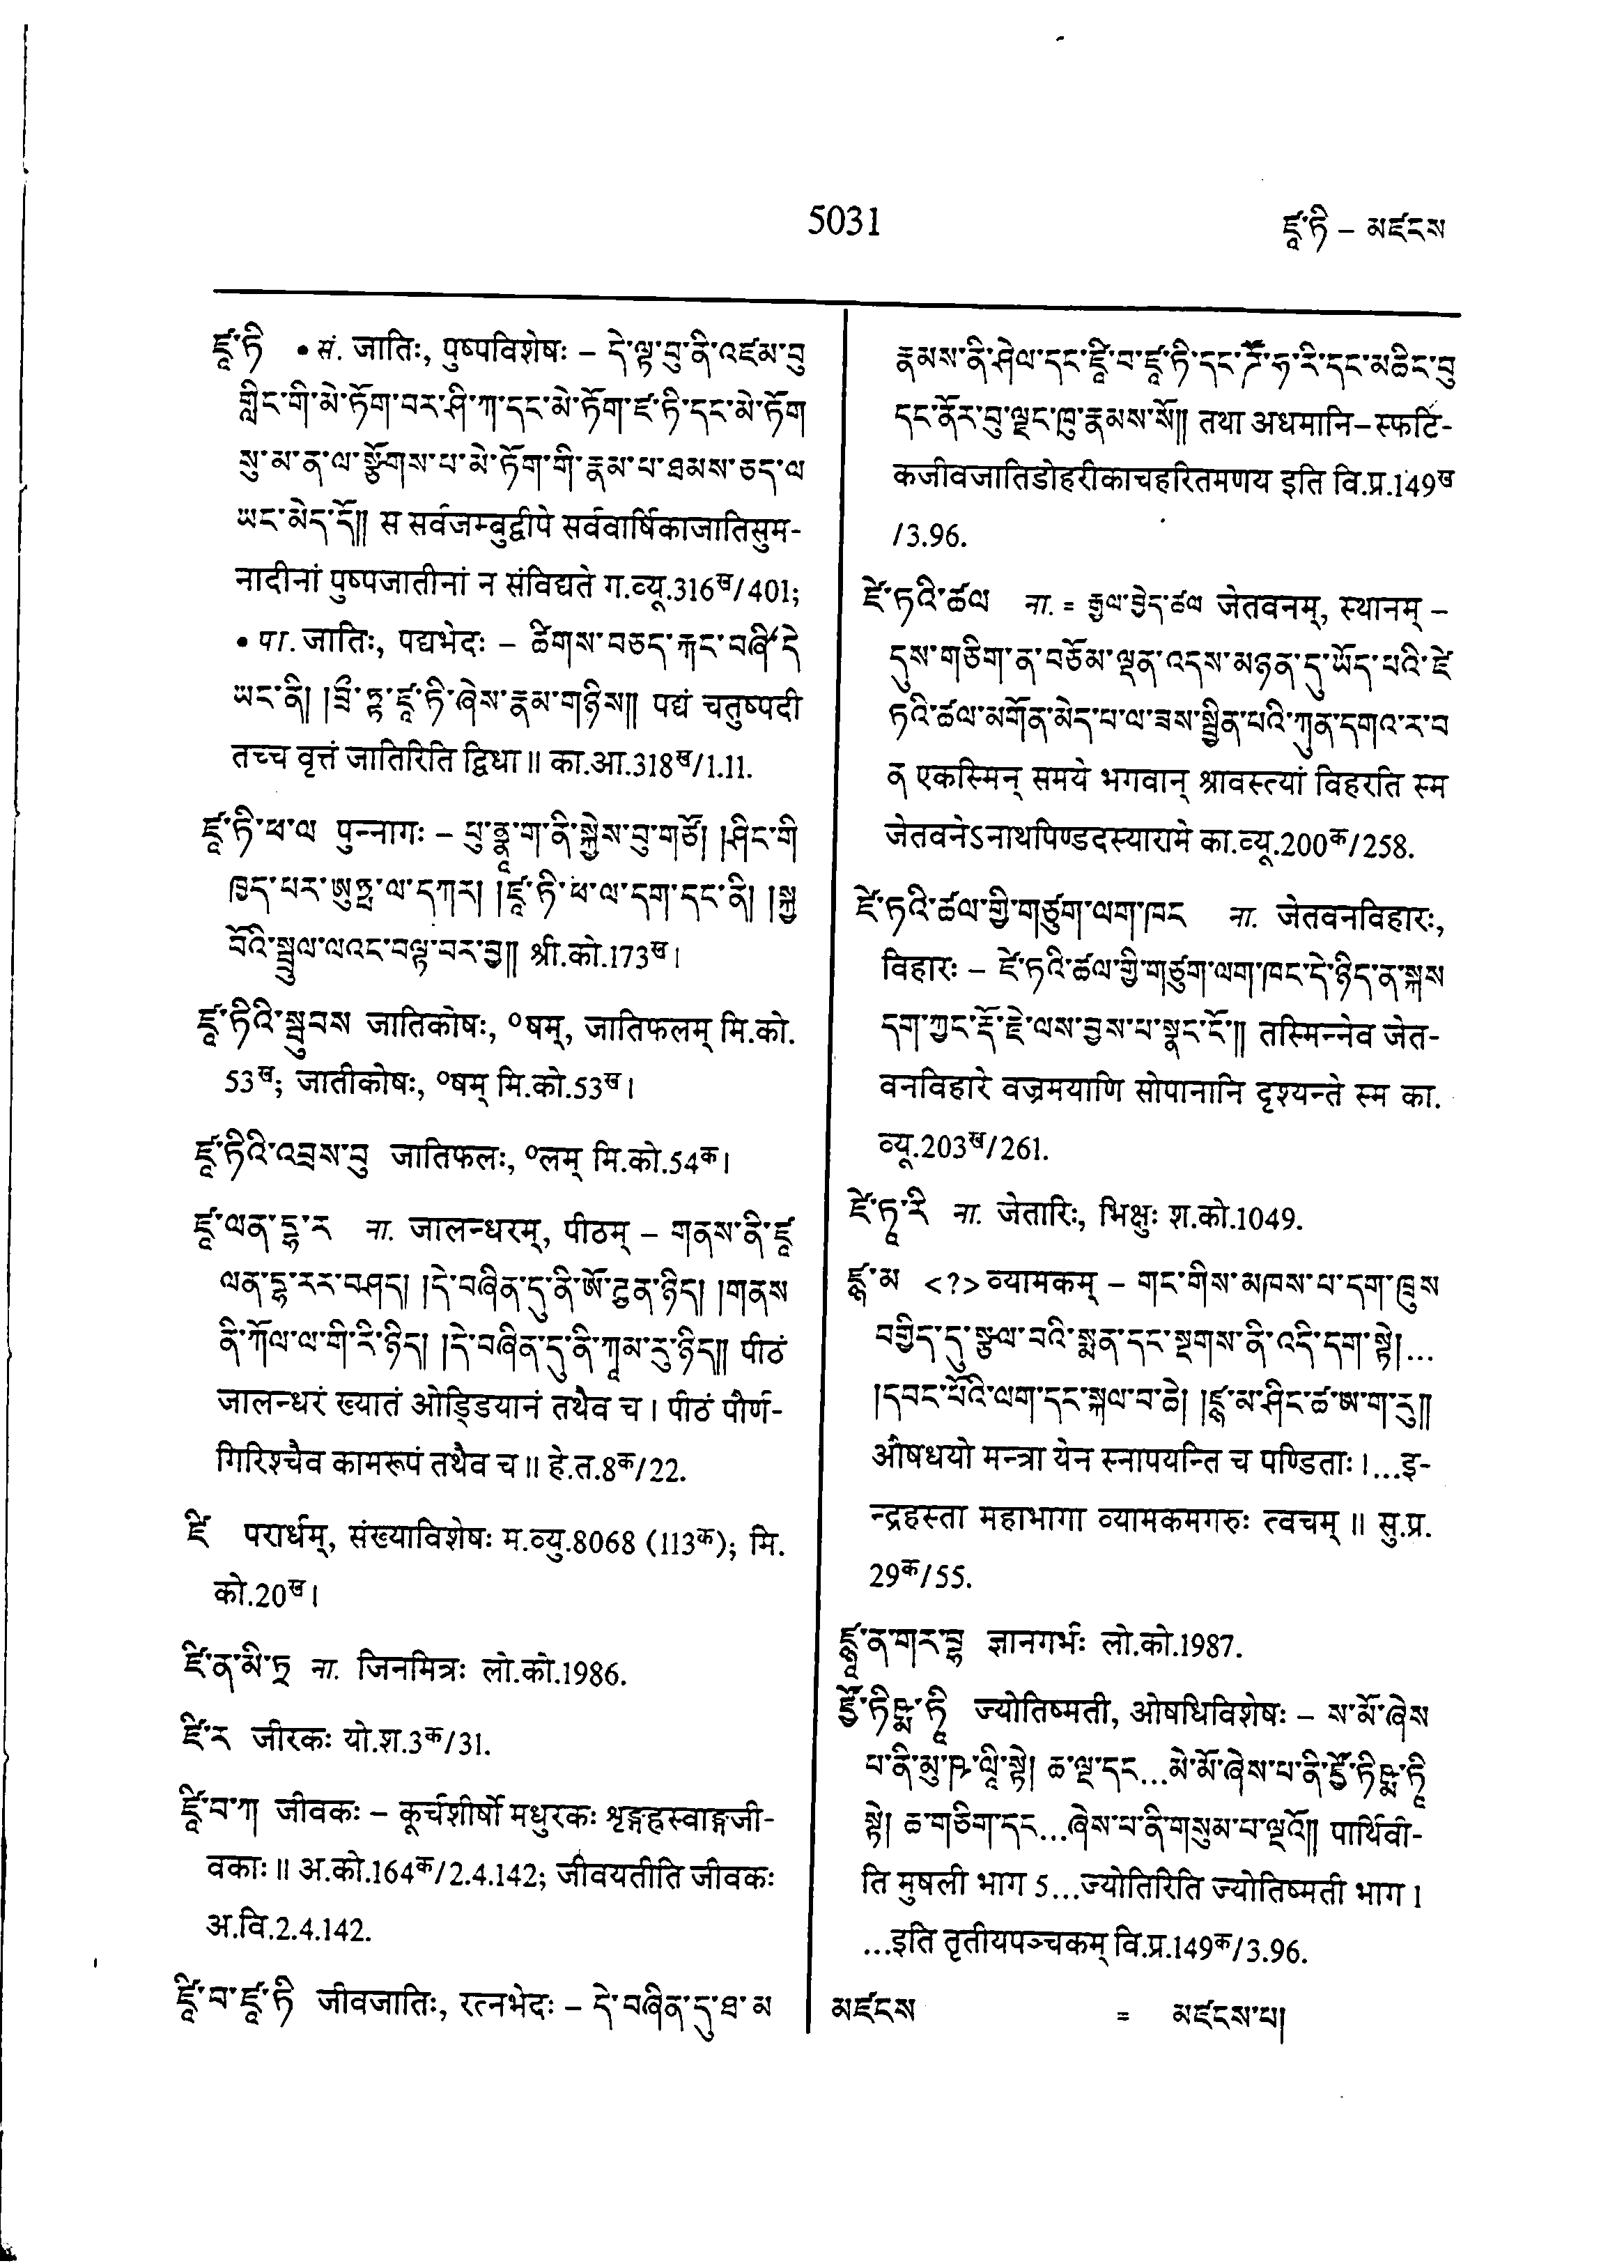 5031
ཛཱ་ཏི – མཛངས
ཛཱ་ཏི • सं. जातिः, पुष्पविशेषः – དེ་ལྟ་བུ་ནི་འཛམ་བུ
གླིང་གི་མེ་ཏོག་བར་ཤི་ཀ་དང་མེ་ཏོག་ཛ་ཏི་དང་མེ་ཏོག
སུ་མ་ན་ལ་སྩོགས་པ་མེ་ཏོག་གི་རྣམ་པ་ཐམས་ཅད་ལ
ཡང་མེད་དོ།། स सर्वजम्बुद्वीपे सर्ववार्षिकाजातिसुम-
नादीनां पुष्पजातीनां न संविद्यते ग.व्यू.316ख/401;
• पा. जातिः, पद्यभेदः – ཚིགས་བཅད་རྐང་བཞི་དེ
ཡང་ནི། །བྲྀ་ཏྟ་ཛཱ་ཏི་ཞེས་རྣམ་གཉིས།། पद्यं चतुष्पदी
तच्च वृत्तं जातिरिति द्विधा ॥ का.आ.318ख/1.11.
ཛཱ་ཏི་ཕ་ལ पुन्नागः – པུ་ནྣཱ་ག་ནི་སྐྱེས་བུ་གཙོ། །ཤིང་གི
ཁྱད་པར་ཨུཏྤ་ལ་དཀར། །ཛཱ་ཏི་ཕ་ལ་དག་དང་ནི། །སྐྱ
བོའི་སྦྲུལ་ལའང་བལྟ་བར་བྱ།། श्री.को.173ख।
ཛཱ་ཏིའི་སྦུབས जातिकोषः, ॰षम्, जातिफलम् मि.को.
53ख; जातीकोषः, ॰षम् मि.को.53ख।
ཛཱ་ཏིའི་འབྲས་བུ जातिफलः, ॰लम् मि.को.54क।
ཛཱ་ལན་དྷ་ར ना. जालन्धरम्, पीठम् – གནས་ནི་ཛཱ
ལན་དྷ་རར་བཤད། །དེ་བཞིན་དུ་ནི་ཨོ་ཌྱན་ཉིད། །གནས
ནི་ཀོལ་ལ་གི་རི་ཉིད། །དེ་བཞིན་དུ་ནི་ཀཱམ་རུ་ཉིད།། पीठं
जालन्धरं ख्यातं ओड्डियानं तथैव च । पीठं पौर्ण-
गिरिश्चैव कामरूपं तथैव च ॥ हे.त.8क/22.
ཛི परार्धम्, संख्याविशेषः म.व्यु.8068 (113क); मि.
को.20ख।
ཛི་ན་མི་ཏྲ ना. जिनमित्रः लो.को.1986.
ཛི་ར जीरकः यो.श.3क/31.
ཛཱི་བ་ཀ། जीवकः – कूर्चशीर्षो मधुरकः शृङ्गह्रस्वाङ्गजी-
वकाः ॥ अ.को.164क/2.4.142; जीवयतीति जीवकः
अ.वि.2.4.142.
ཛཱི་བ་ཛཱ་ཏི जीवजातिः, रत्नभेदः – དེ་བཞིན་དུ་ཐ་མ
རྣམས་ནི་ཤེལ་དང་ཛཱི་བ་ཛཱ་ཏི་དང་ཌོ་ཧ་རི་དང་མཆིང་བུ
དང་ནོར་བུ་ལྗང་ཁུ་རྣམས་སོ།། तथा अधमानि–स्फटि-
कजीवजातिडोहरीकाचहरितमणय इति वि.प्र.149ख
/3.96.
ཛེ་ཏའི་ཚལ ना. = རྒྱལ་བྱེད་ཚལ जेतवनम्, स्थानम् –
དུས་གཅིག་ན་བཅོམ་ལྡན་འདས་མཉན་དུ་ཡོད་པའི་ཛེ
ཏའི་ཚལ་མགོན་མེད་པ་ལ་ཟས་སྦྱིན་པའི་ཀུན་དགའ་ར་བ
ན एकस्मिन् समये भगवान् श्रावस्त्यां विहरति स्म
जेतवनेऽनाथपिण्डदस्यारामे का.व्यू.200क/258.
ཛེ་ཏའི་ཚལ་གྱི་གཙུག་ལག་ཁང ना. जेतवनविहारः,
विहारः – ཛེ་ཏའི་ཚལ་གྱི་གཙུག་ལག་ཁང་དེ་ཉིད་ན་སྐས
དག་ཀྱང་རྡོ་རྗེ་ལས་བྱས་པ་སྣང་ངོ་།། तस्मिन्नेव जेत-
वनविहारे वज्रमयाणि सोपानानि दृश्यन्ते स्म का.
व्यू.203ख/261.
ཛེ་ཏཱ་རི ना. जेतारिः, भिक्षुः श.को.1049.
ཛྙ་མ <?> व्यामकम् – གང་གིས་མཁས་པ་དག་ཁྲུས
བགྱིད་དུ་སྩལ་བའི་སྨན་དང་སྔགས་ནི་འདི་དག་སྟེ།...
།དབང་པོའི་ལག་དང་སྐལ་བ་ཆེ། །ཛྙ་མ་ཤིང་ཚ་ཨ་ག་རུ།།
औषधयो मन्त्रा येन स्नापयन्ति च पण्डिताः ।...इ-
न्द्रहस्ता महाभागा व्यामकमगरुः त्वचम् ॥ सु.प्र.
29क/55.
ཛྙཱ་ན་གར་བྷ ज्ञानगर्भः लो.को.1987.
ཛྱོ་ཏིཥྨ་ཏཱི ज्योतिष्मती, ओषधिविशेषः – ས་མོ་ཞེས
པ་ནི་མུ་ཥ་ལཱི་སྟེ། ཆ་ལྔ་དང...མེ་མོ་ཞེས་པ་ནི་ཛྱོ་ཏིཥྨ་ཏཱི
སྟེ། ཆ་གཅིག་དང...ཞེས་པ་ནི་གསུམ་པ་ལྔའོ།། पार्थिवी-
ति मुषली भाग 5...ज्योतिरिति ज्योतिष्मती भाग 1
...इति तृतीयपञ्चकम् वि.प्र.149क/3.96.
མཛངས = མཛངས་པ།